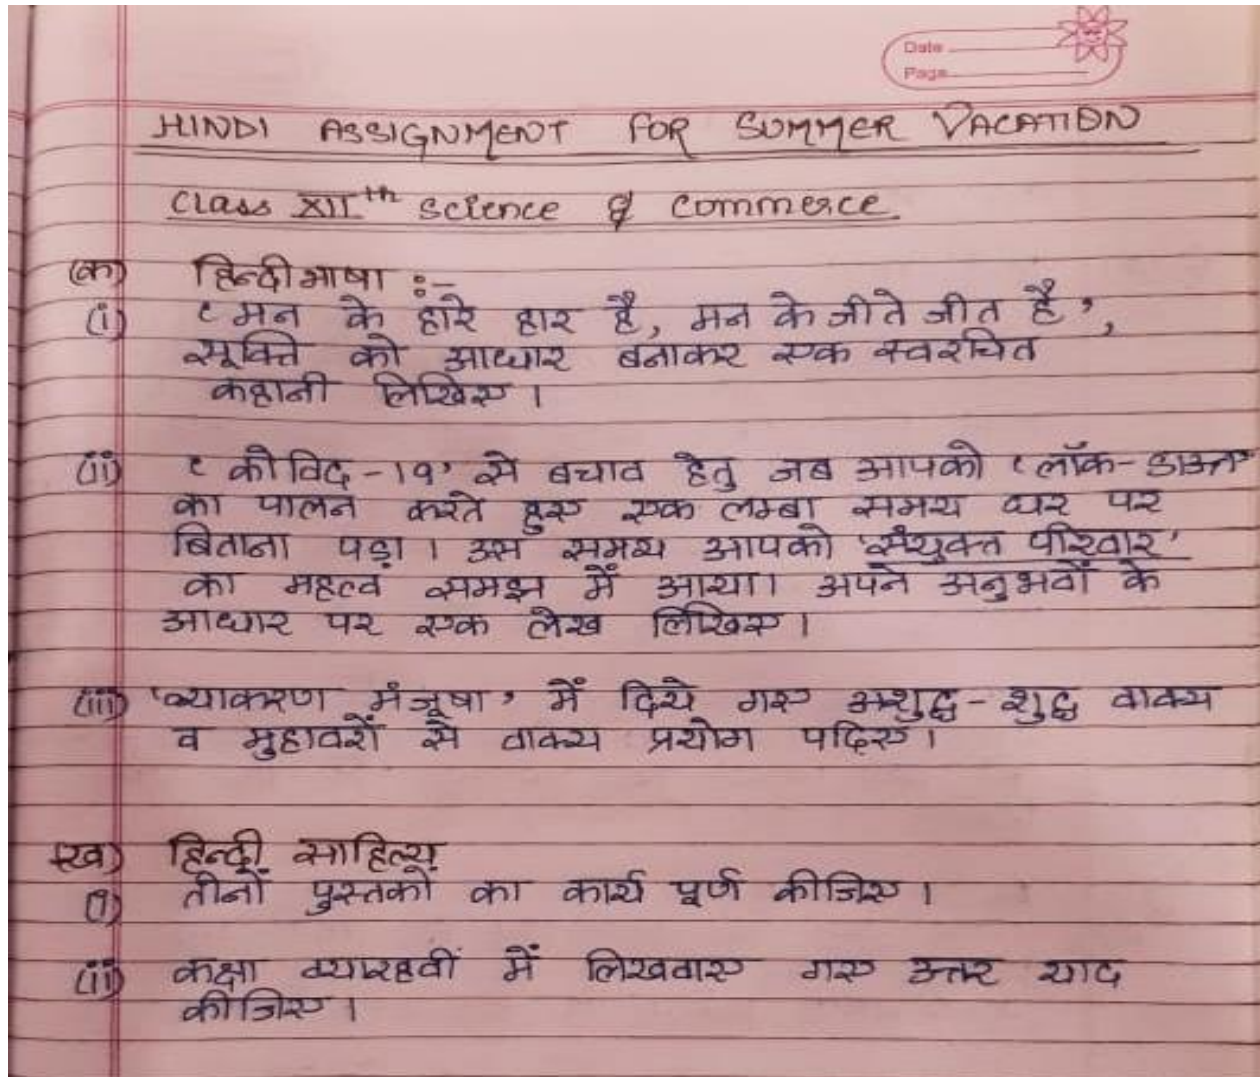 Date
Page
HINDI ASSIGNMENT FOR SUMMER VACATION
Class XII th Science & Commerce.
(क) हिन्दी भाषा :-
(i) ‘मन के हारे हार है, मन के जीते जीत है’,
सूक्ति को आधार बनाकर एक स्वरचित
कहानी लिखिए।
(ii) ‘कोविद-19’ से बचाव हेतु जब आपको ‘लॉक-डाऊन’
का पालन करते हुए एक लम्बा समय घर पर
बिताना पड़ा। उस समय आपको ‘संयुक्त परिवार’
का महत्व समझ में आया। अपने अनुभवों के
आधार पर एक लेख लिखिए।
(iii) ‘व्याकरण मंजूषा’ में दिये गए अशुद्ध-शुद्ध वाक्य
व मुहावरों से वाक्य प्रयोग पढ़िए।
(ख) हिन्दी साहित्य
(i) तीनों पुस्तकों का कार्य पूर्ण कीजिए।
(ii) कक्षा ग्यारहवीं में लिखवाए गए उत्तर याद
कीजिए।